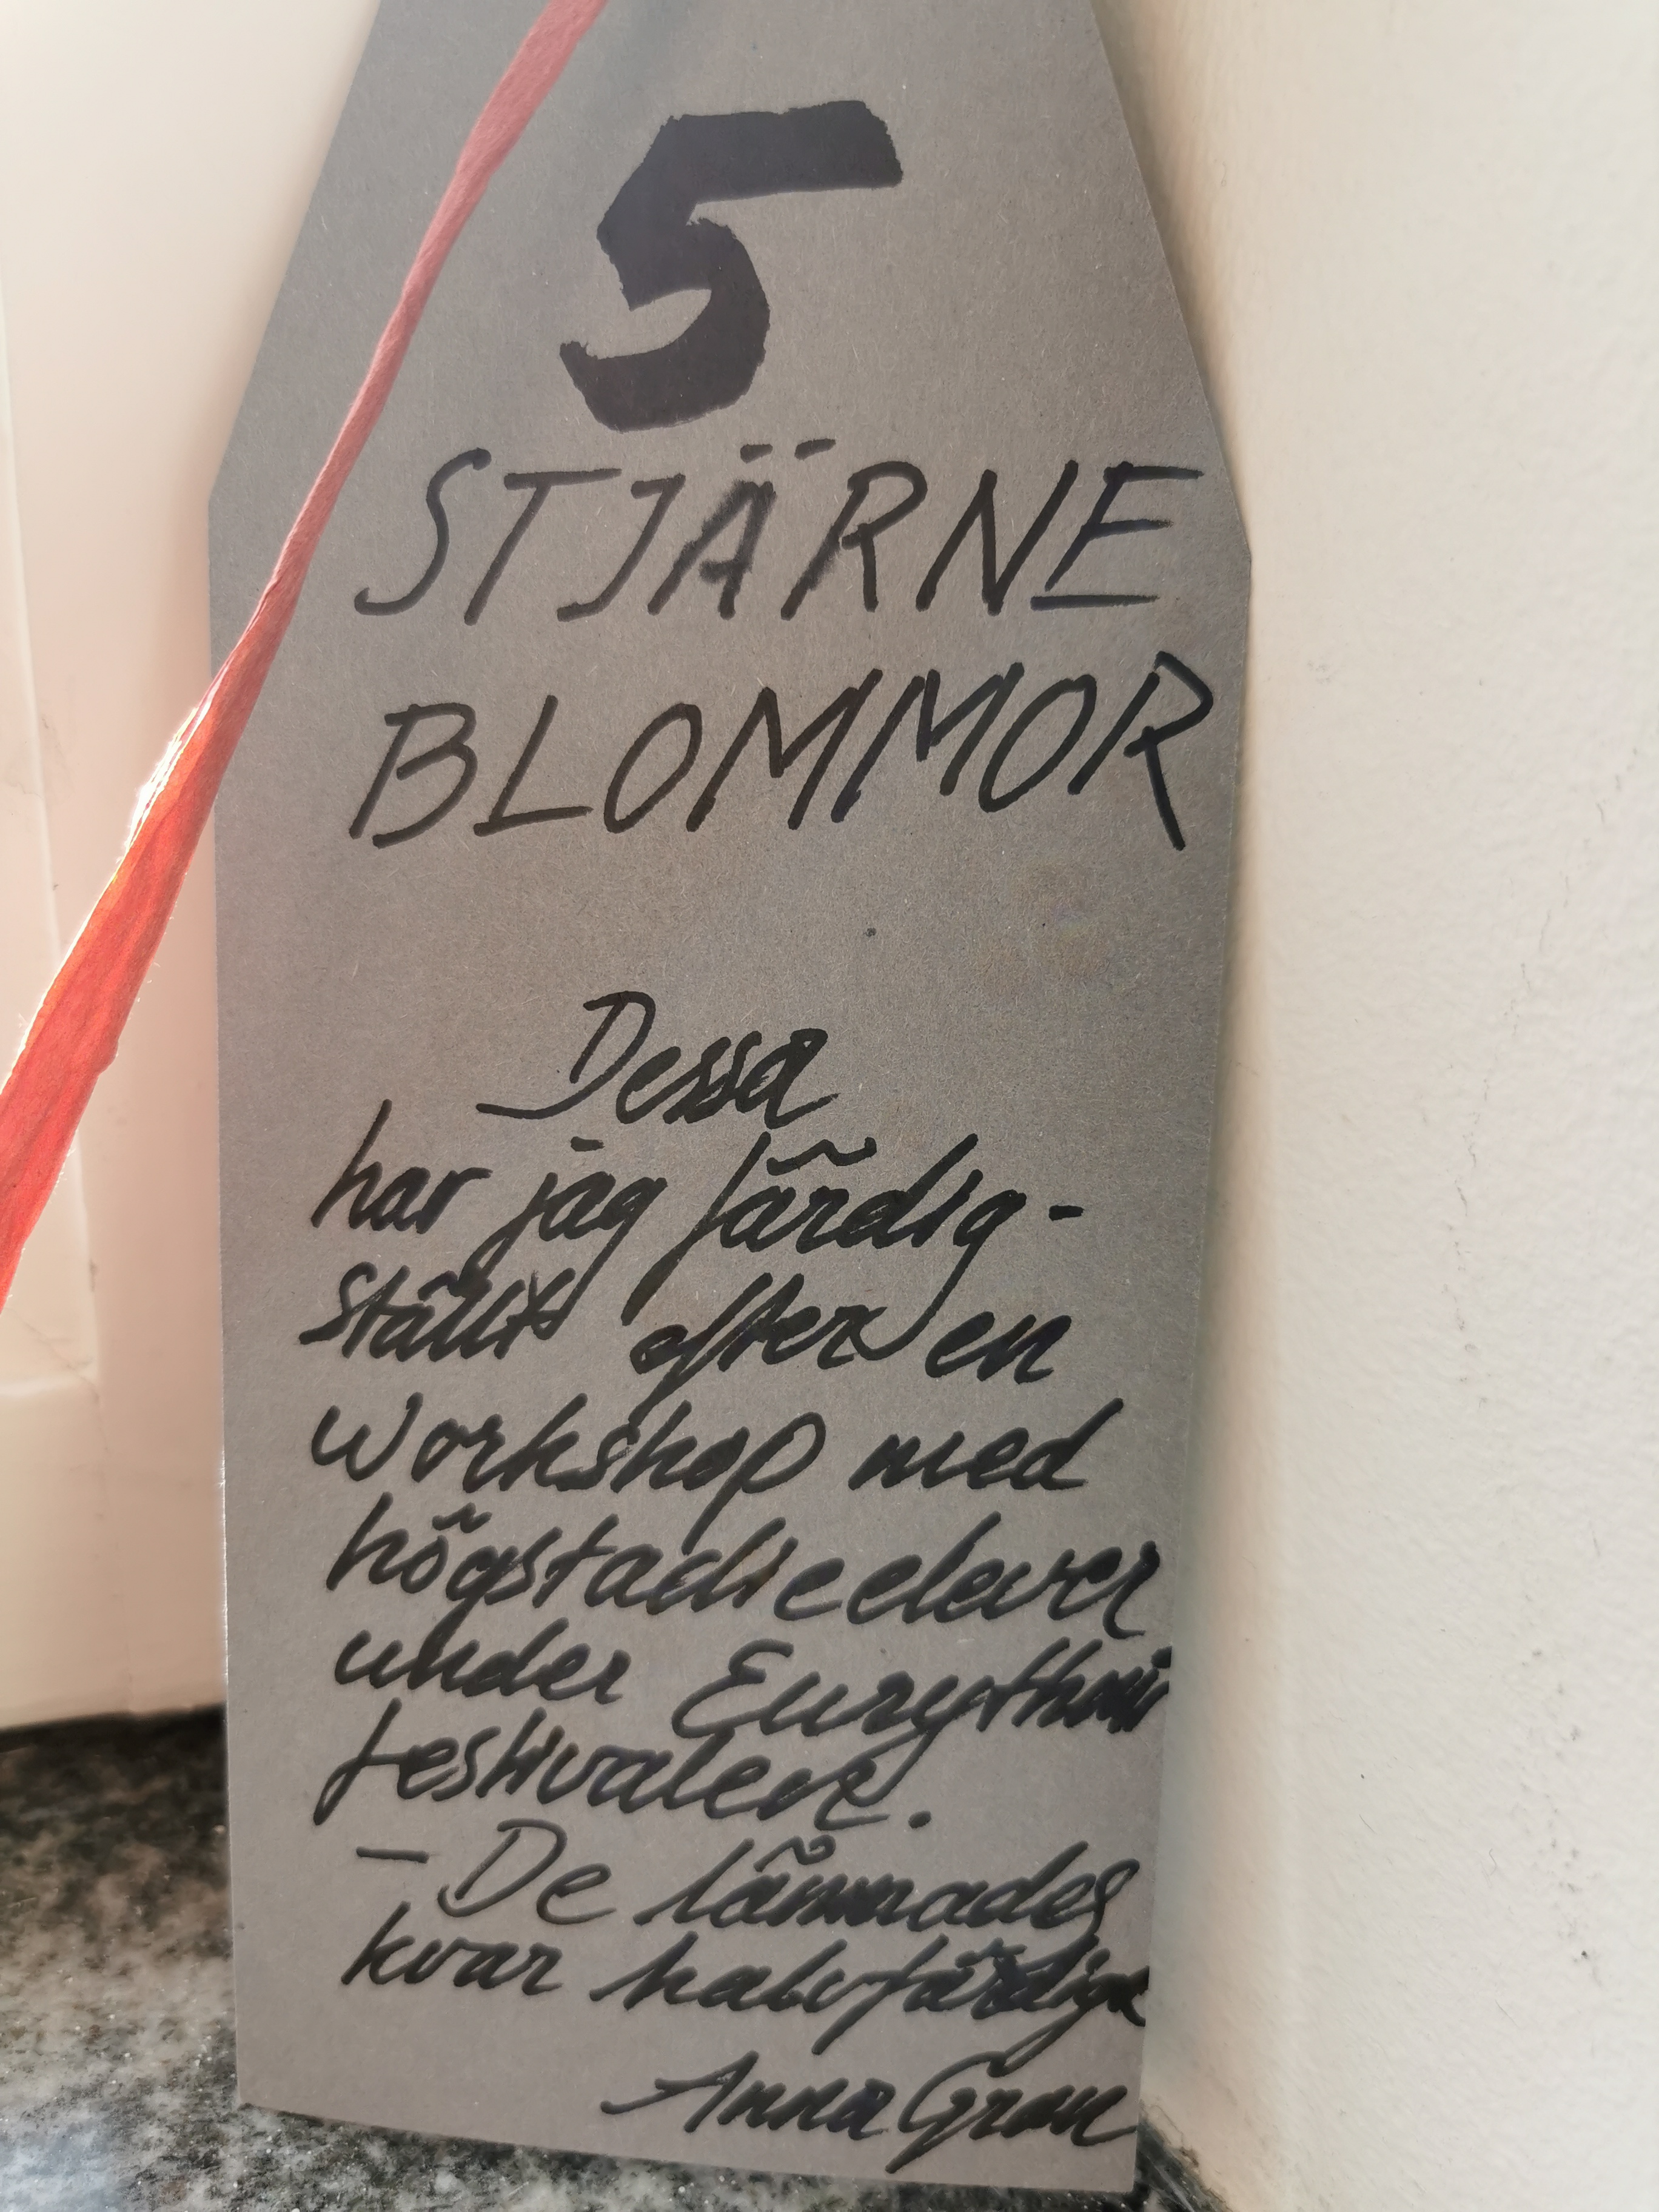 5
STJÄRNE
BLOMMOR
Dessa
har jag färdig-
ställt efter en
workshop med
högstadieelever
under Eurythmi
festivalen.
- De lämnades
kvar halvfärdiga
Anna Gran